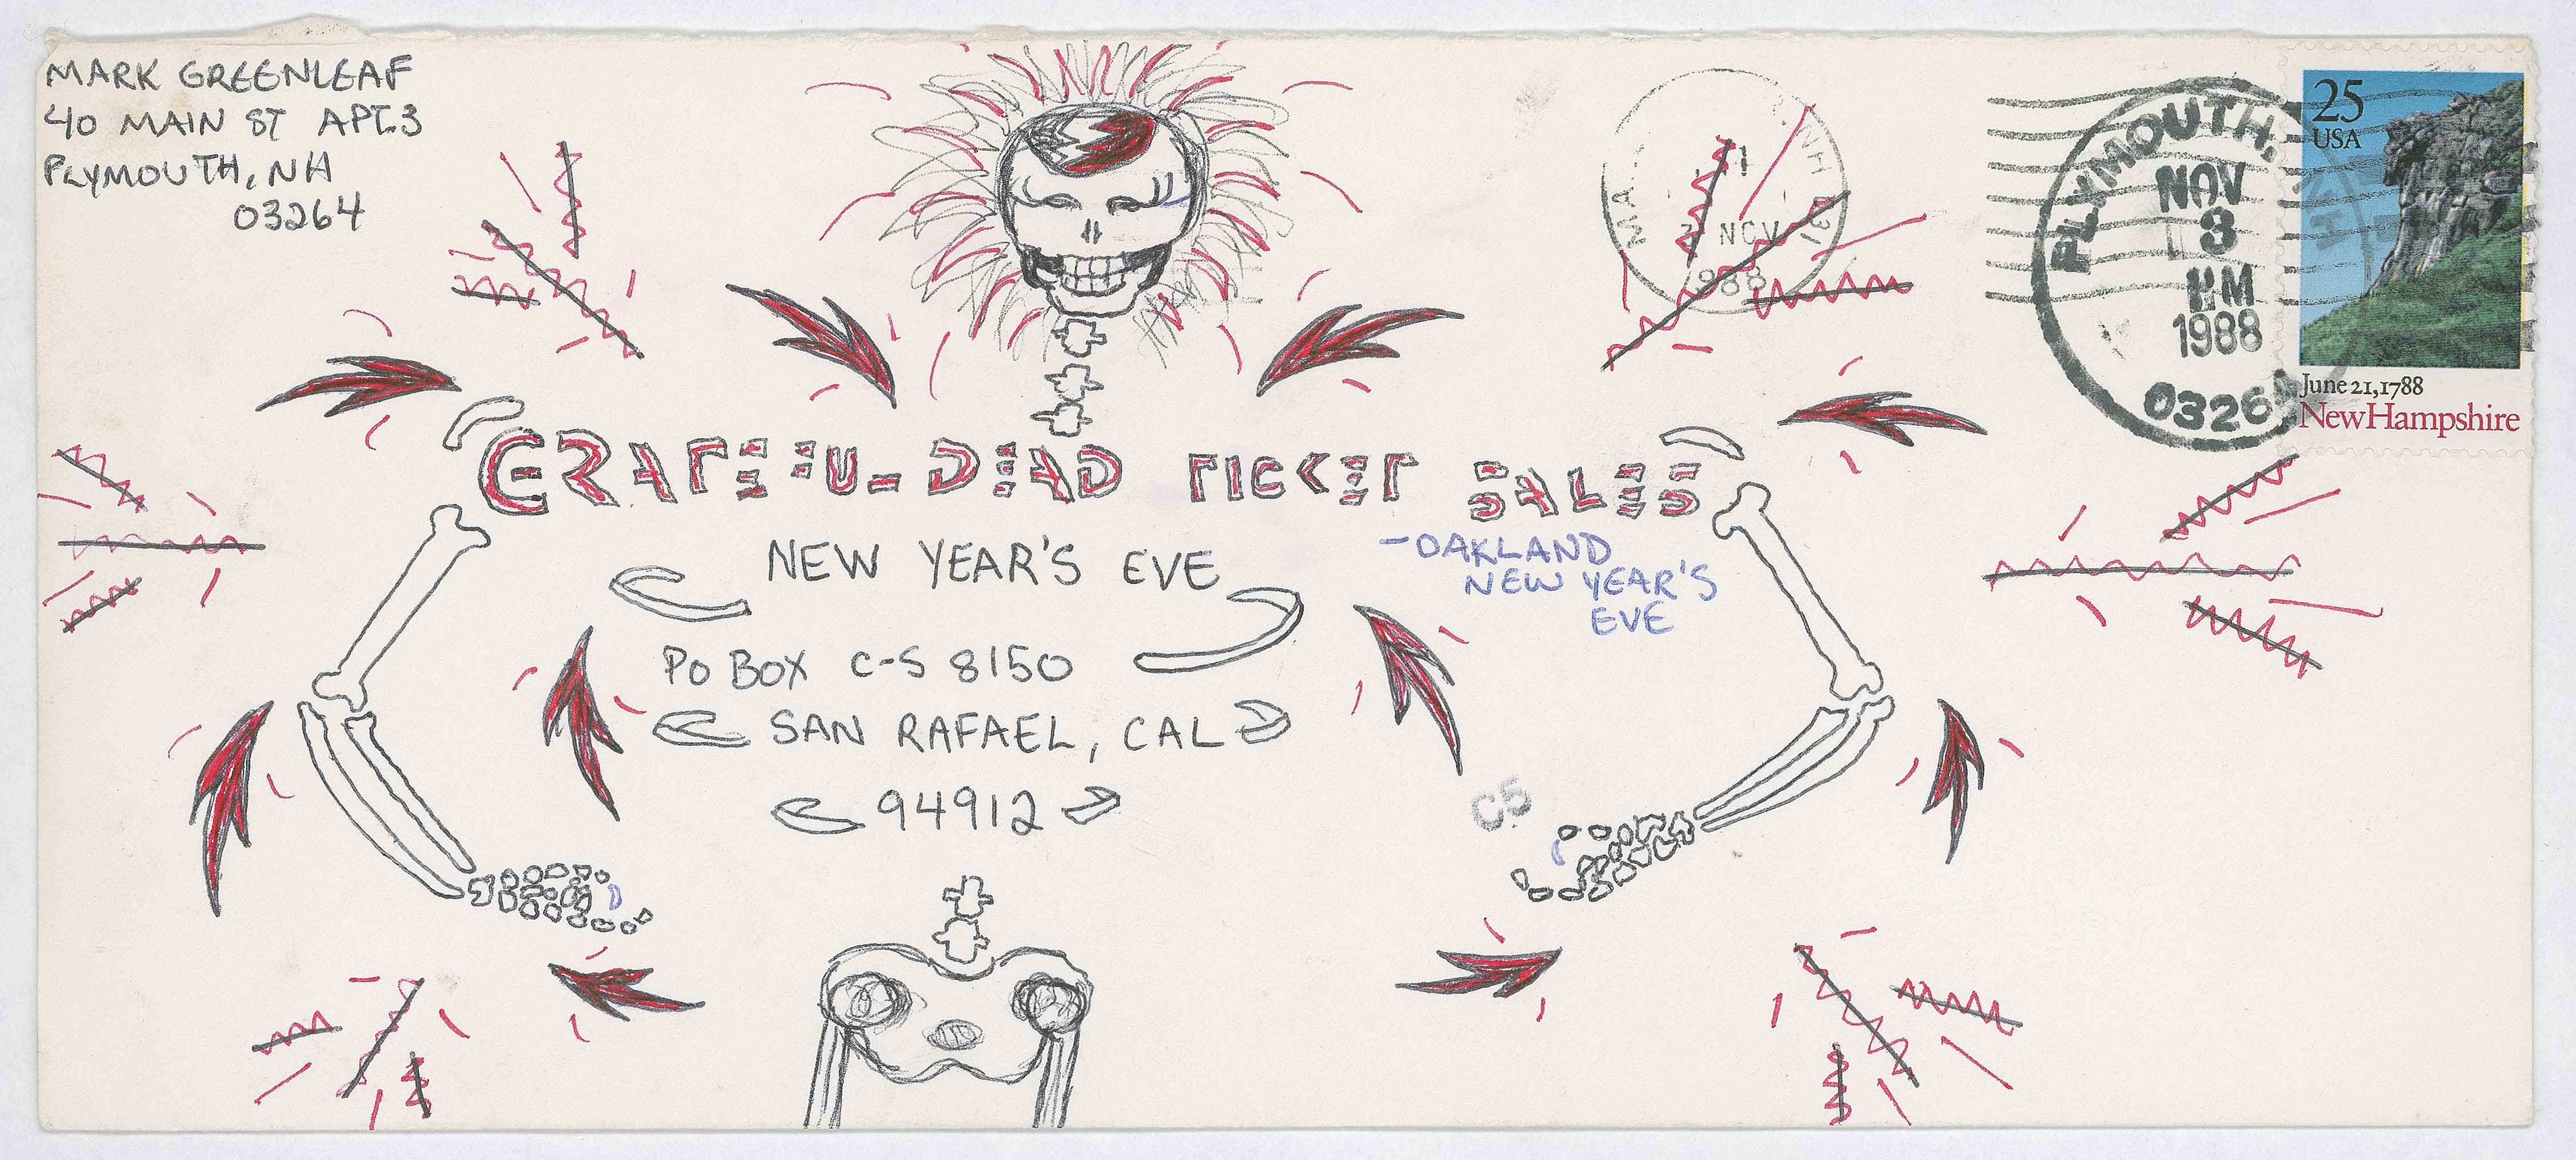 MARK GREENLEAF
40 MAIN ST APT.3
PLYMOUTH, NH
03264
25
USA
June 21, 1788
New Hampshire
PLYMOUTH,
NOV
3
1988
0326
NOV
1988
GRATEFUL DEAD TICKET SALES
NEW YEAR'S EVE
-OAKLAND
NEW YEAR'S
EVE
PO BOX C-S 8150
SAN RAFAEL, CAL
94912
C5